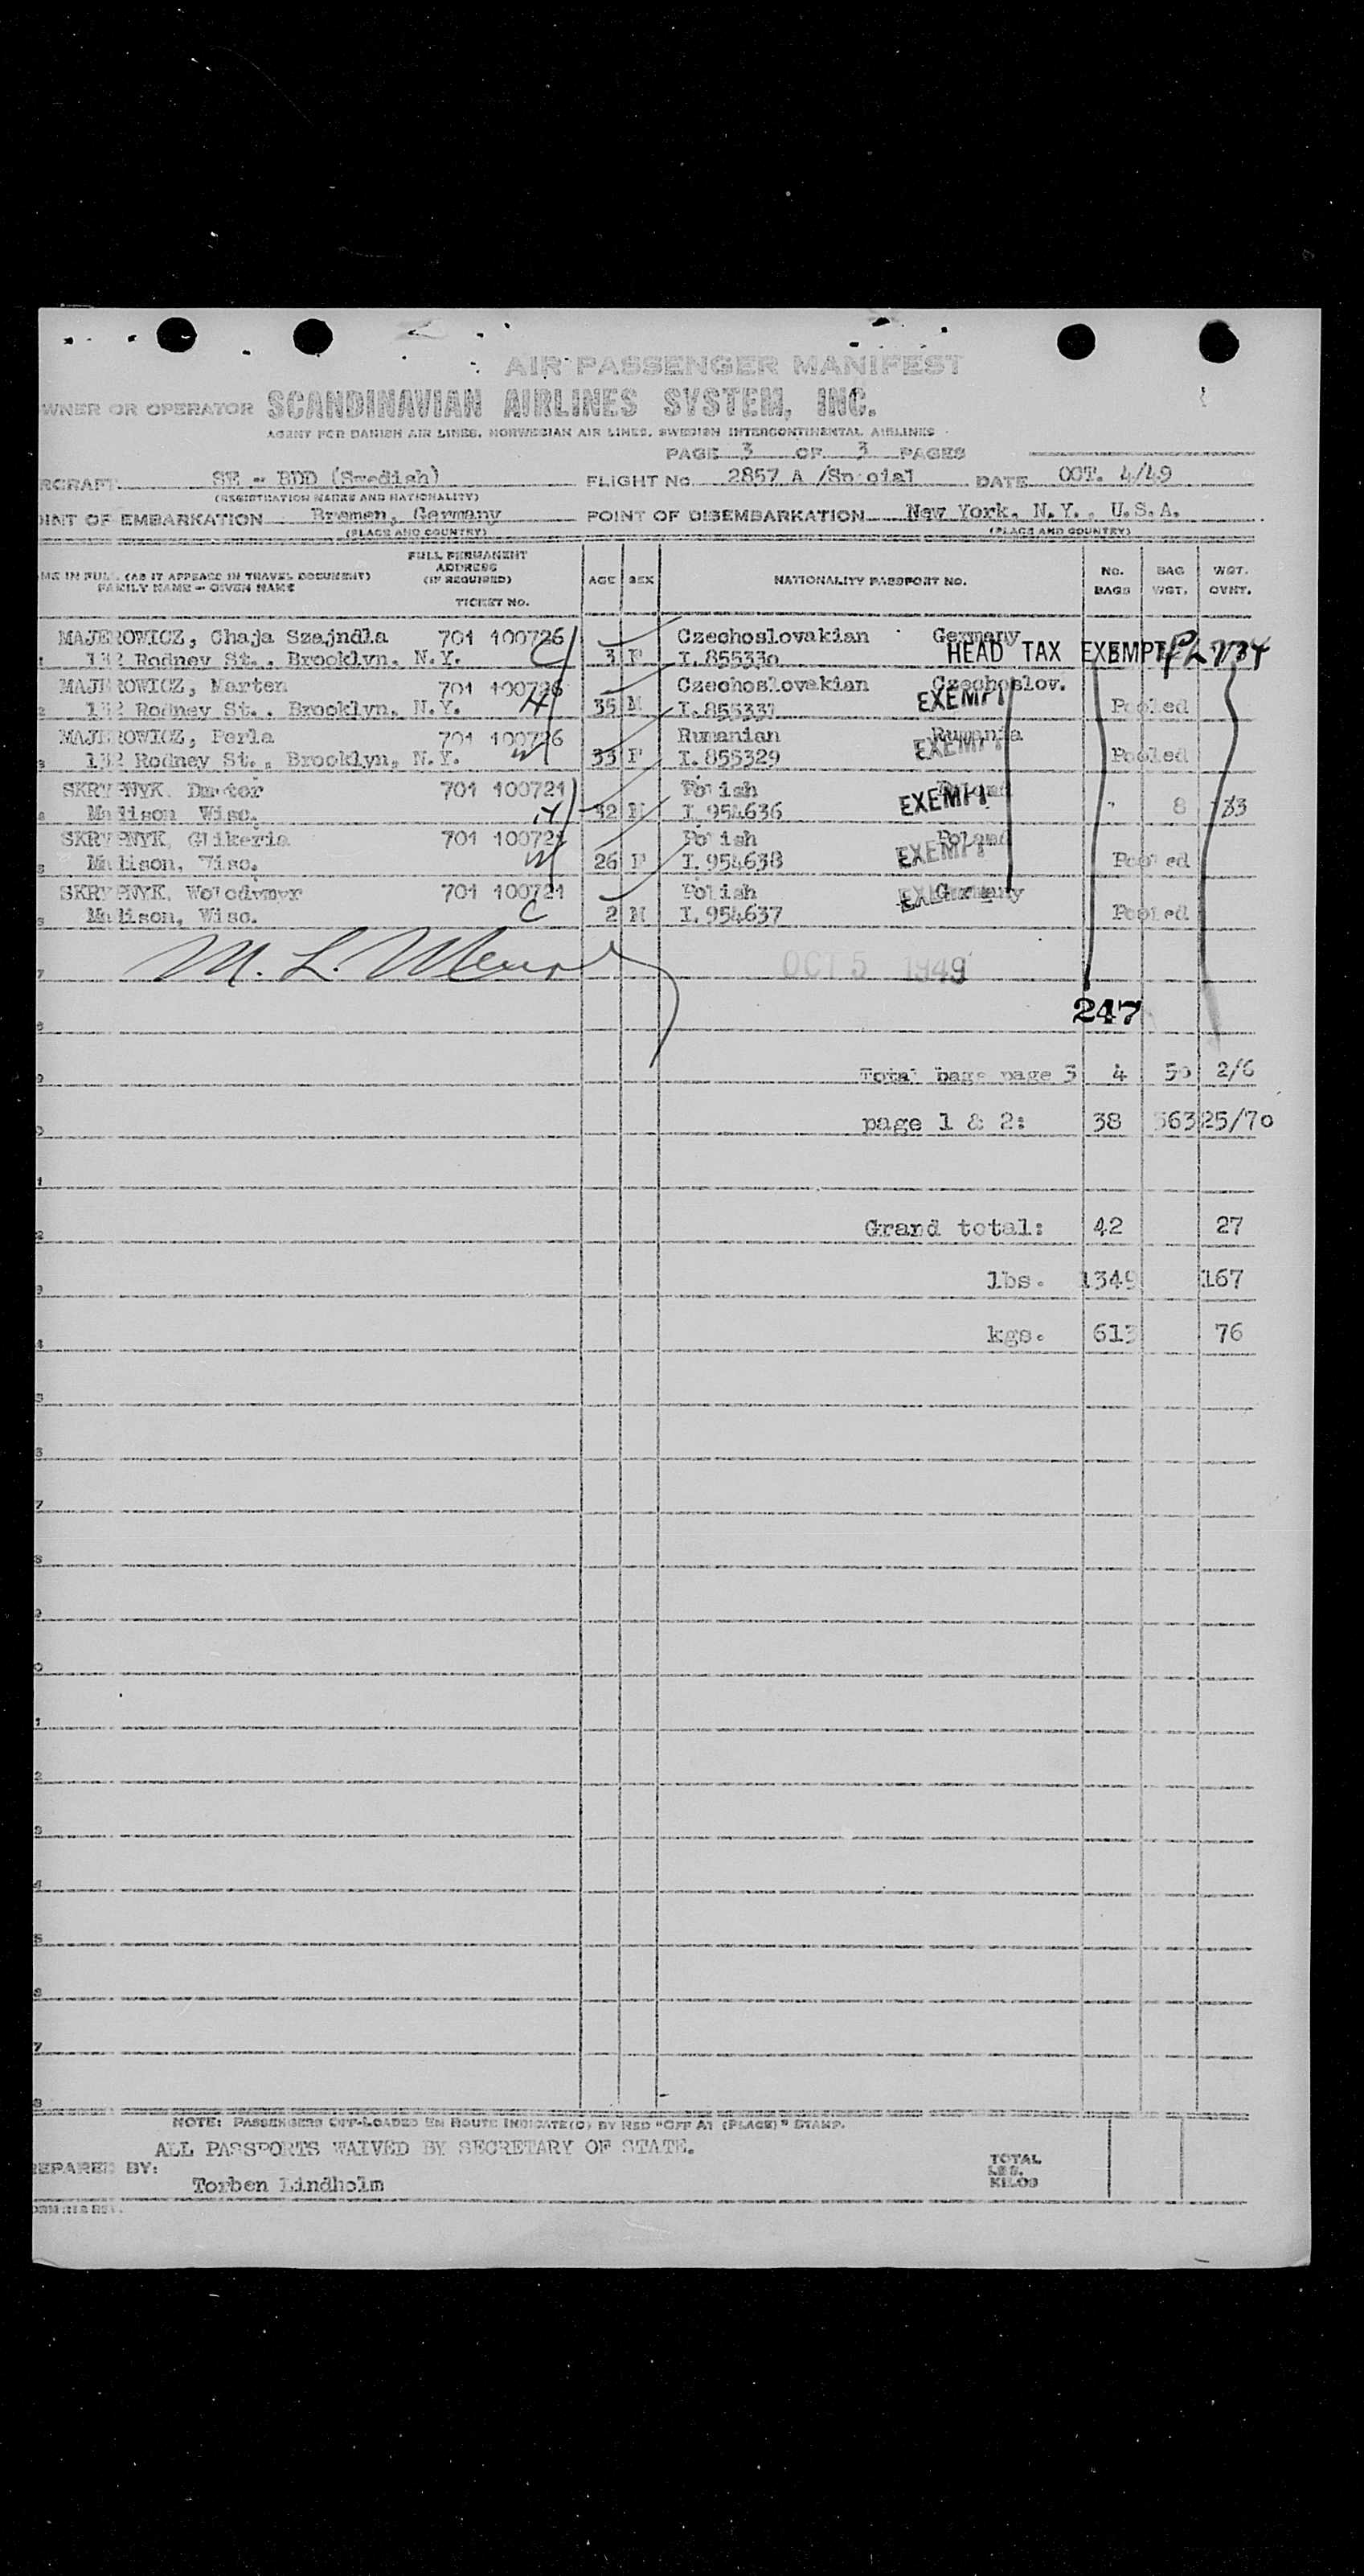 AIR PASSENGER MANIFEST
WNER OR OPERATOR SCANDINAVIAN AIRLINES SYSTEM, INC.
AGENT FOR DANISH AIR LINES, NORWEGIAN AIR LINES, SWEDISH INTERCONTINENTAL AIRLINES
PAGE 3 OF 3 PAGES
RCRAFT SE - BDD (Swedish) FLIGHT No. 2857 A /Sp cial DATE OCT. 4/49
(REGISTRATION MARKS AND NATIONALITY)
INT OF EMBARKATION Bremen, Germany POINT OF DISEMBARKATION New York, N.Y., U.S.A.
(PLACE AND COUNTRY) (PLACE AND COUNTRY)
ME IN FULL (AS IT APPEARS IN TRAVEL DOCUMENT) FAMILY NAME - GIVEN NAME FULL PERMANENT ADDRESS (IF REQUIRED) TICKET NO. AGE SEX NATIONALITY PASSPORT NO. No. BAGS BAG WGT. WGT. OVNT.
MAJEROWICZ, Chaja Szajndla 701 100726 Czechoslovakian Germany
132 Rodney St., Brooklyn, N.Y. C 3 F I.855330 HEAD TAX EXEMPT
MAJEROWICZ, Marten 701 100726 Czechoslovakian Czechoslov.
132 Rodney St., Brooklyn, N.Y. H 35 M I.855331 EXEMPT Pooled
MAJEROWICZ, Perla 701 100726 Rumanian Rumania
132 Rodney St., Brooklyn, N.Y. W 33 F I.855329 EXEMPT Pooled
SKRYPNYK, 701 100721 Polish Poland
Madison Wisc. H 32 M I.954636 EXEMPT 8
SKRYPNYK, Glikeria 701 100721 Polish Poland
Madison, Wisc. W 26 F I.954638 EXEMPT Pooled
SKRYPNYK, Wolodymyr 701 100721 Polish Germany
Madison, Wisc. C 2 M I.954637 EXEMPT Pooled
M. L.
OCT 5 1949
247
Total bags page 3 4 50 2/6
page 1 & 2: 38 563 25/70
Grand total: 42 27
lbs. 1349 167
kgs. 613 76
NOTE: PASSENGERS OFF-LOADED EN ROUTE INDICATE(D) BY RED "OFF AT (PLACE)" STAMP.
ALL PASSPORTS WAIVED BY SECRETARY OF STATE.
EPARED BY: TOTAL
LBS.
Torben Lindholm KILOS